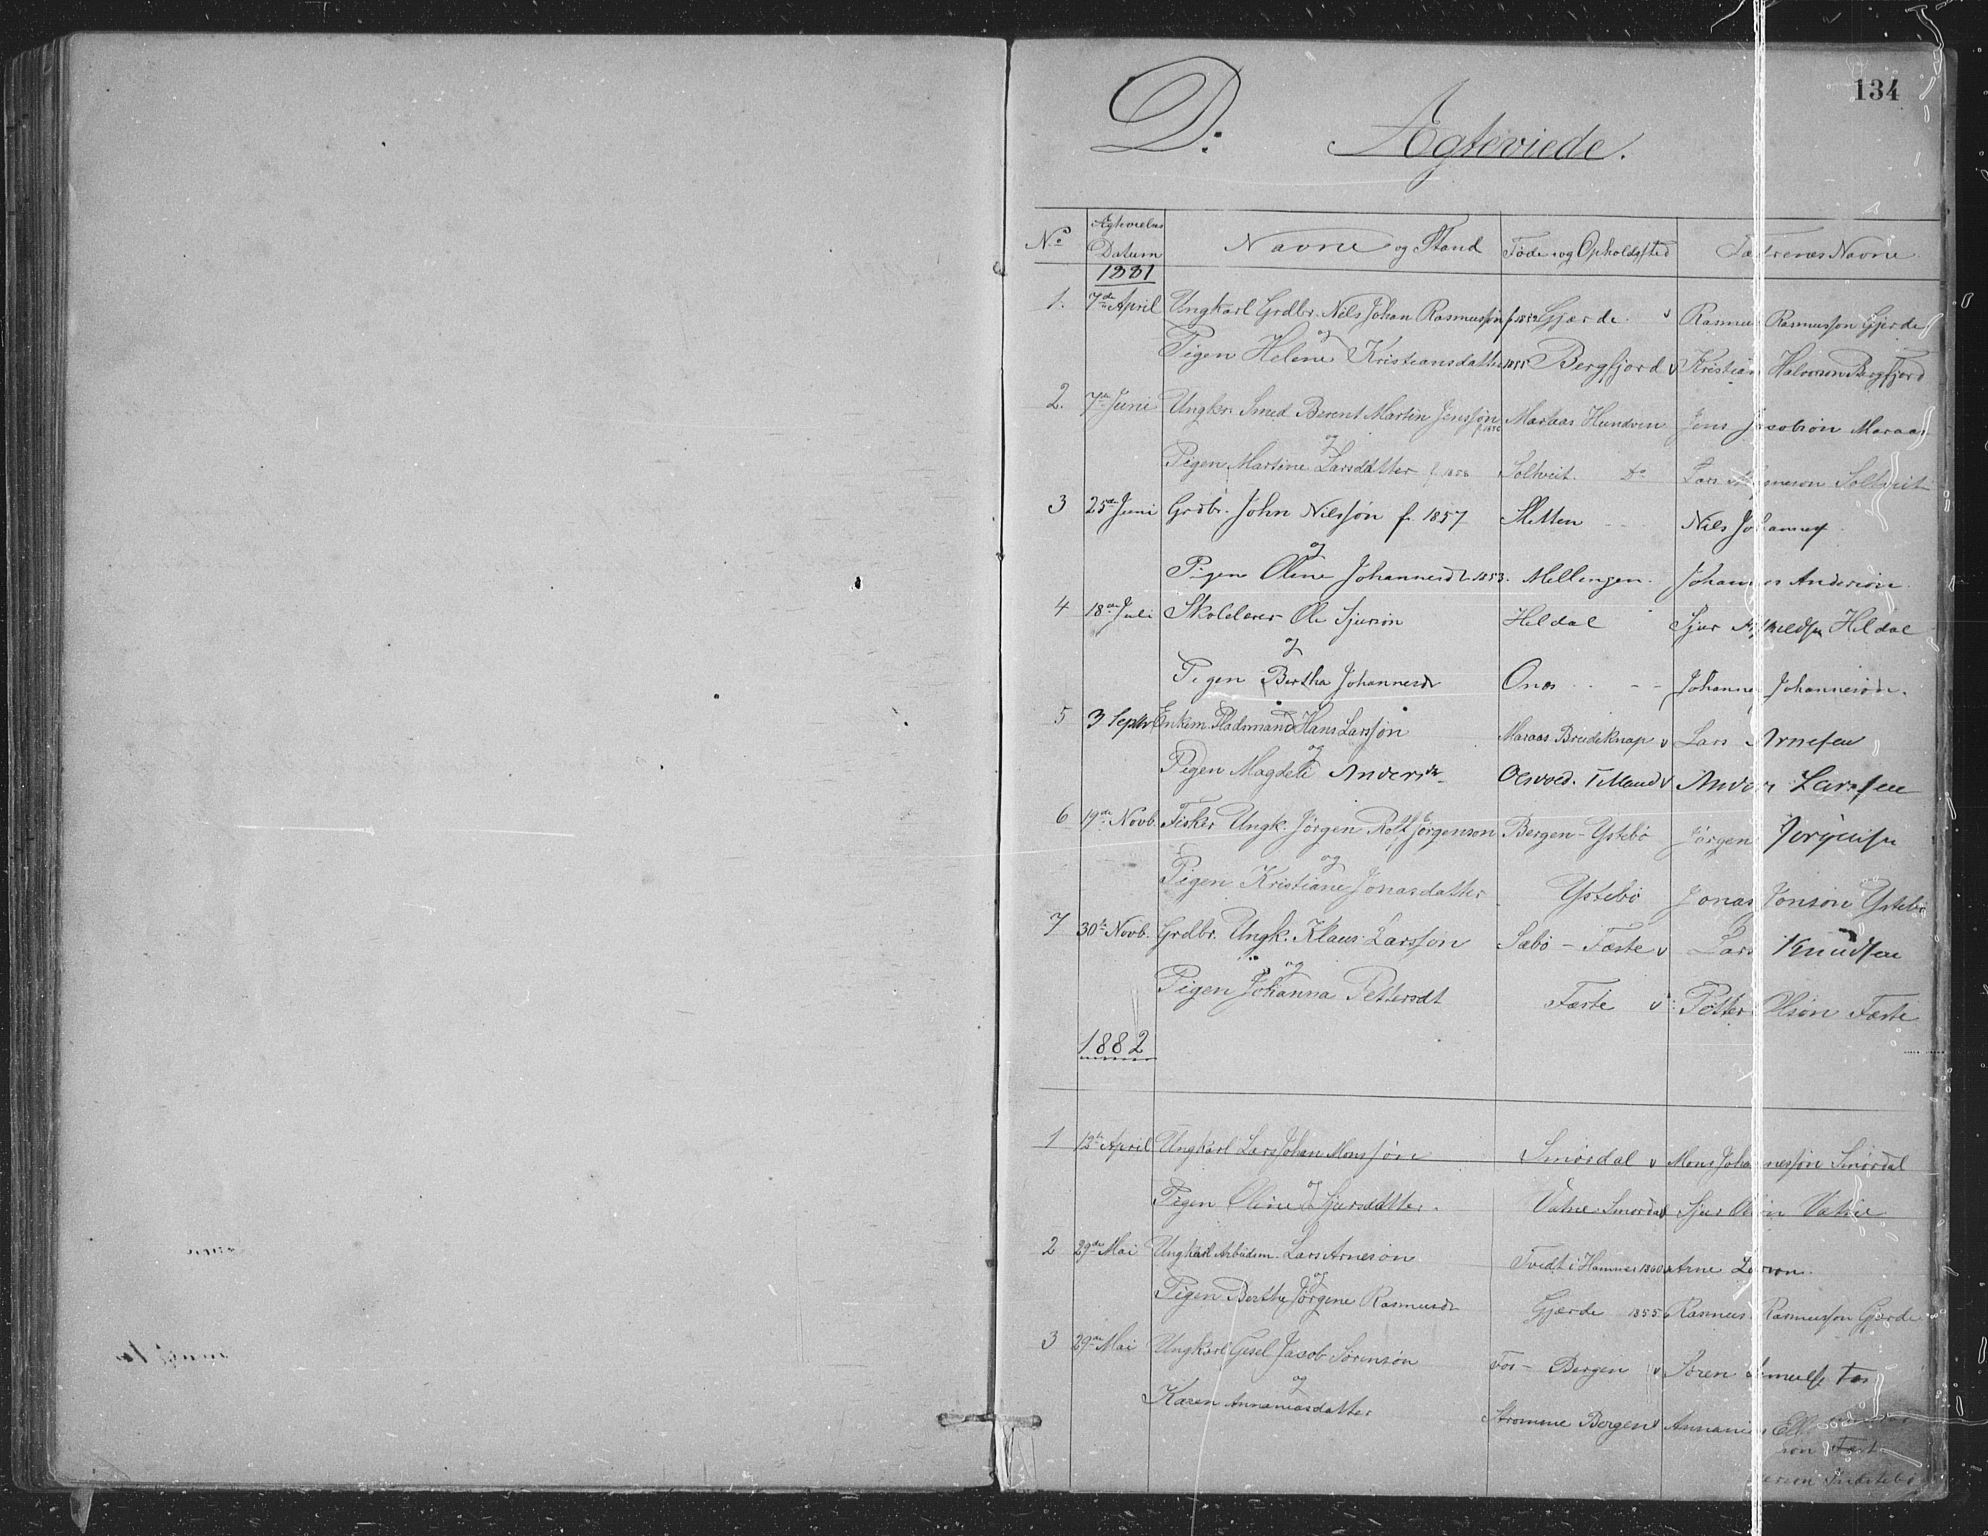 134
D. Ægteviede.
No Ægtevielses Datum Navne og Stand Føde og Opholdssted Fædrenes Navne
1881
1. 7de April Ungkarl Grdbr. Nils Johan Rasmussøn f. 1852 Gjærde. v Rasmus Rasmussøn Gjerde
og
Pigen Helene Kristiansdatter 1855 Bergfjord v Kristian Halvorson Bergfjord
2. 7de Juni Ungkr. Smed Berent Martin Jenssøn Maraas Hundven Jens Jacobson Maraas
og
Pigen Martine Larsdatter f. 1858 Soltveit. Do Lars Soltveit
3 25de Juni Grdbr. John Nilssøn f. 1857 Sletten Nils Johannes
og
Pigen Oline Johannesd 1853. Mellingen. Johannes Anderson.
4 18de Juli Skolelærer Ole Sjursøn Hildal Sjur Hildal
og
Pigen Bertha Johannesdr Onæs Johannes Johannesøn.
5 3 Septbr Enkem. Pladsmand Hans Larssøn Maraas Breideknap v Lars Arnesen
og
Pigen Magdeli Andersdr Anders Larssen
6 19de Novb. Fisker Ungk. Jørgen Rolf Jørgenson Bergen - Ystebø Jørgen Jørgensen
og
Pigen Kristiane Jonasdatter Ystebø Jonas Jonsøn Ystebø
7 30te Novb. Grdbr. Ungk. Klaus Larssøn Sæbø - Fæste v Lars Knudsen
og
Pigen Johanna Pettersdt Fæste v Petter Olsøn Fæste
1882
1 12te April Ungkarl Lars Johan Monssøn Smørdal v Mons Johannessøn Smørdal
og
Pigen Oline Sjursdatter. Vatne Smørdal Sjur Olsøn Vatne
2 29de Mai Ungkarl Arbeidsm. Lars Arnesøn Tvedt i Hammer 1860 Arne Larson.
og
Pigen Berthe Jørgene Rasmusdr Gjærde 1855. Rasmus Rasmussøn Gjærde
3 29de Mai Ungkarl Gesel Jacob Sørensøn Fos - Bergen v Søren Fos
og
Karen Annaniasdatter Strømme Bergen v Annanias